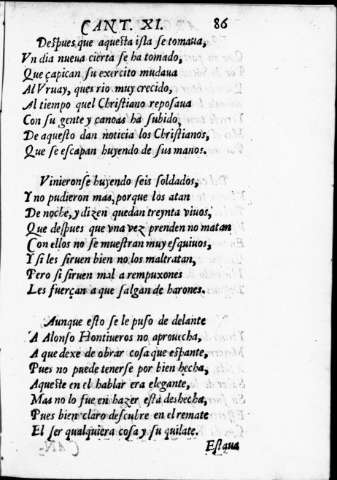 CANT. XI. 86
Despues que aquesta isla se tomaua,
Vn dia nueua cierta se ha tomado,
Que çapican su exercito mudaua
Al Vruay, ques rio muy crecido,
Al tiempo quel Christiano reposaua
Con su gente y canoas ha subido,
De aquesto dan noticia los Christianos,
Que se escapan huyendo de sus manos.
Vinieronse huyendo seis soldados,
Y no pudieron mas, porque los atan
De noche, y dizen quedan treynta viuos,
Que despues que vna vez prenden no matan
Con ellos no se muestran muy esquiuos,
Y si les siruen bien no los maltratan,
Pero si siruen mal a rempuxones
Les fuerçan a que salgan de harones.
Aunque esto se le puso de delante
A Alonso Hontiueros no aprouecha,
A que dexe de obrar cosa que espante,
Pues no puede tenerse por bien hecha,
Aqueste en el hablar era elegante,
Mas no lo fue en hazer esta deshecha,
Pues bien claro descubre en el remate
El ser qualquiera cosa y su quilate.
Estaua